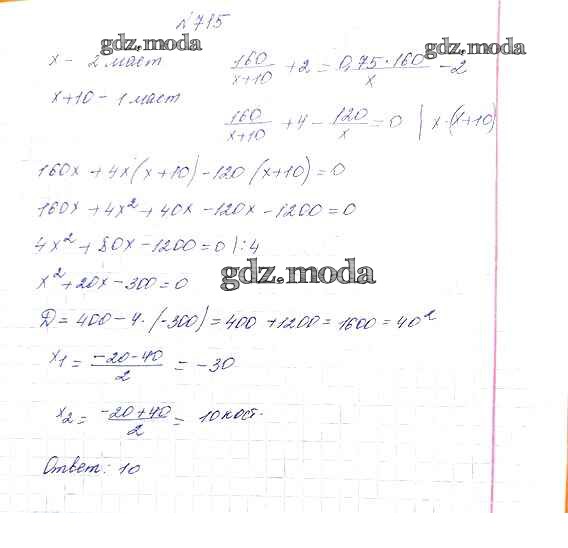 №715
gdz.moda
gdz.moda
x - 2 маст 160/(x+10) + 2 = 0,75·160/x - 2
x+10 - 1 маст
160/(x+10) + 4 - 120/x = 0 | x·(x+10)
160x + 4x(x+10) - 120(x+10) = 0
160x + 4x² + 40x - 120x - 1200 = 0
4x² + 80x - 1200 = 0 |:4
gdz.moda
x² + 20x - 300 = 0
D = 400 - 4·(-300) = 400 + 1200 = 1600 = 40²
x₁ = (-20-40)/2 = -30
x₂ = (-20+40)/2 = 10 кост.
Ответ: 10